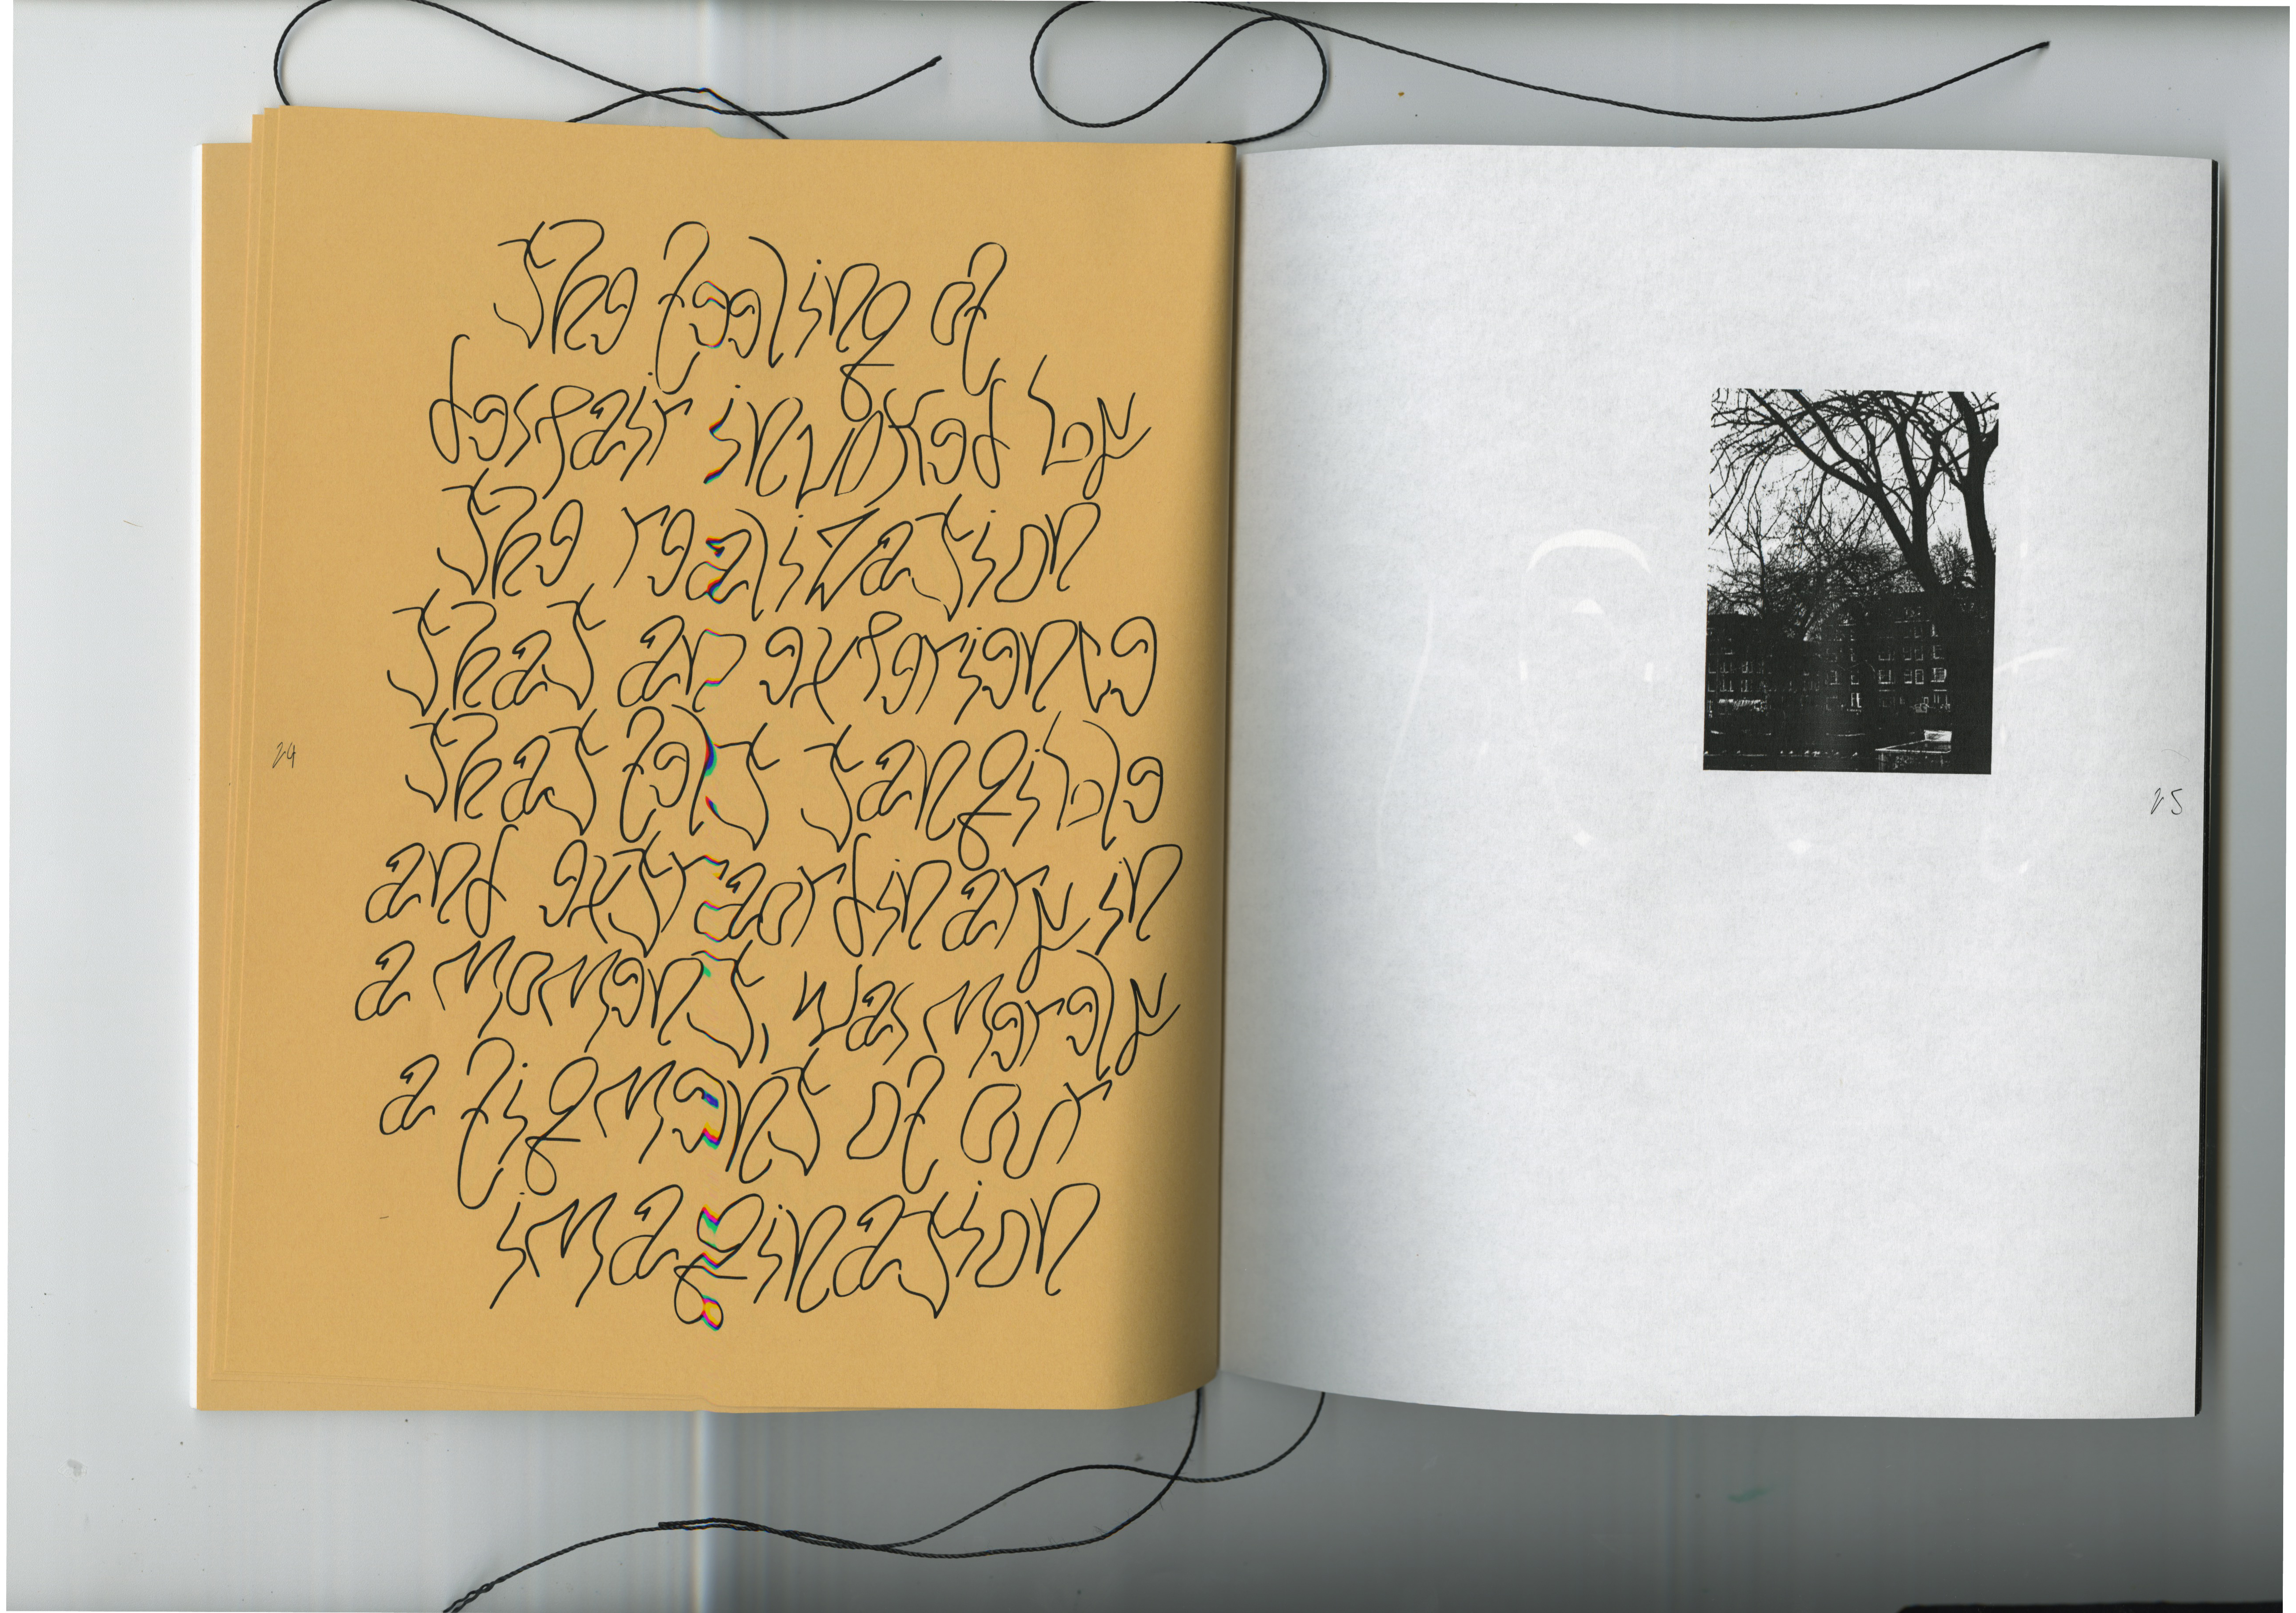 The feeling of
despair invoked by
the realization
that an experience
that felt tangible
and extraordinary in
a moment, was merely
a figment of our
imagination
24
25